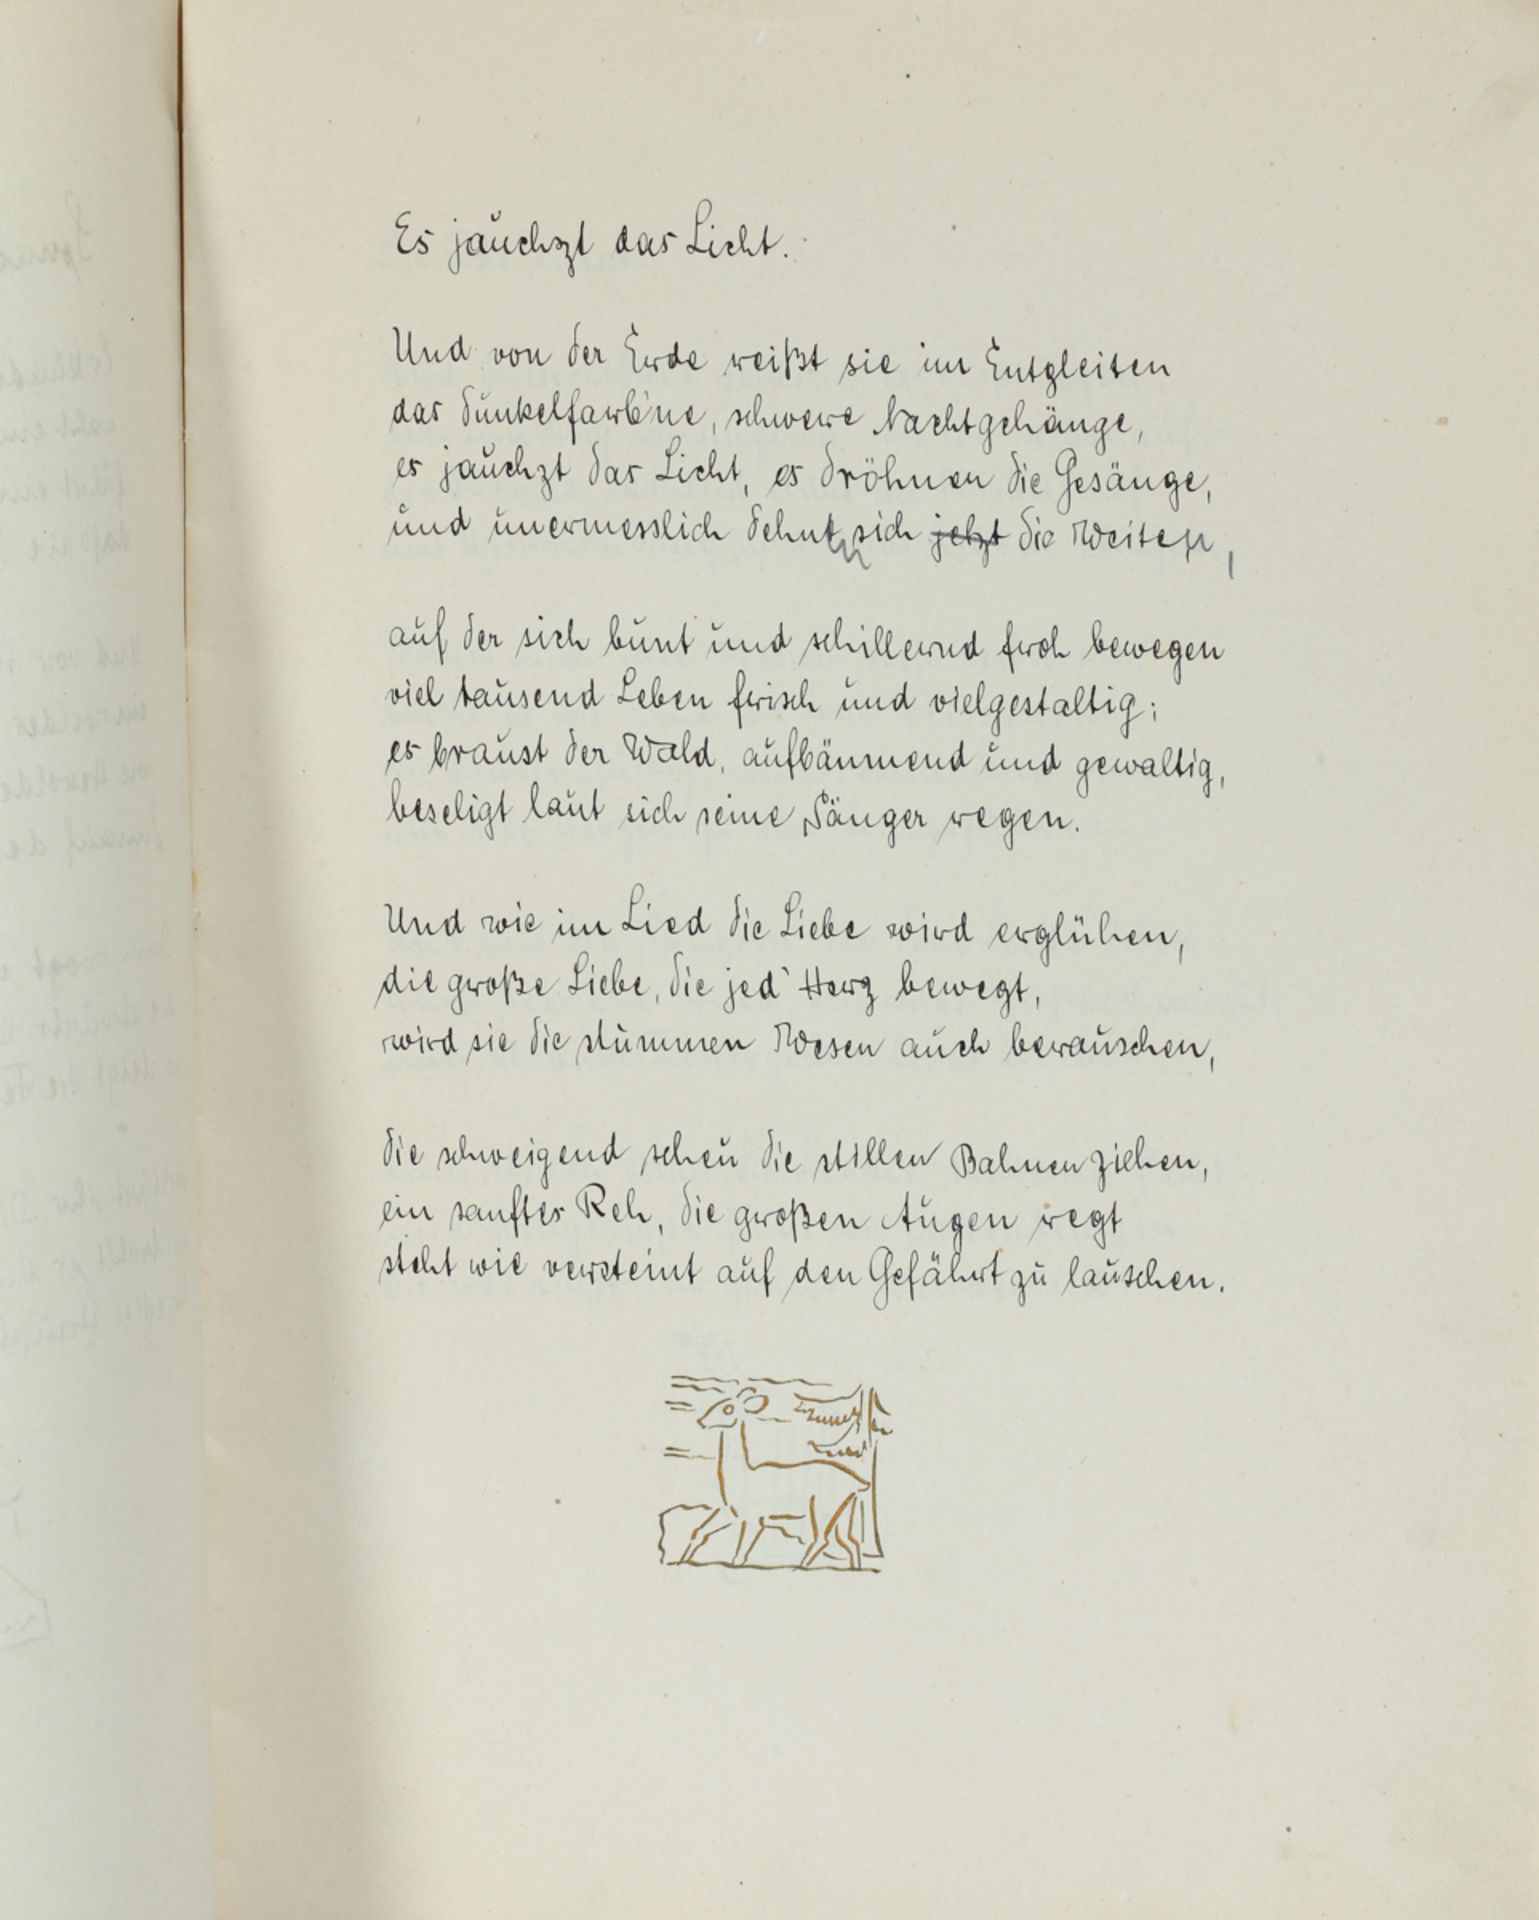 Es jauchzt das Licht.
Und von der Erde reißt sie im Entgleiten
das dunkelfarb'ne, schwere Nachtgehänge,
es jauchzt das Licht, es dröhnen die Gesänge,
und unermesslich dehnt sich jetzt die Weite,
auf der sich bunt und schillernd froh bewegen
viel tausend Leben frisch und vielgestaltig;
es braust der Wald, aufbäumend und gewaltig,
beseligt laut sich seine Sänger regen.
Und wie im Lied die Liebe wird erglühen,
die große Liebe, die jed' Herz bewegt,
wird sie die stummen Wesen auch berauschen,
die schweigend scheu die stillen Bahnen ziehen,
ein sanftes Reh, die großen Augen regt
steht wie versteint auf den Gefährt zu lauschen.